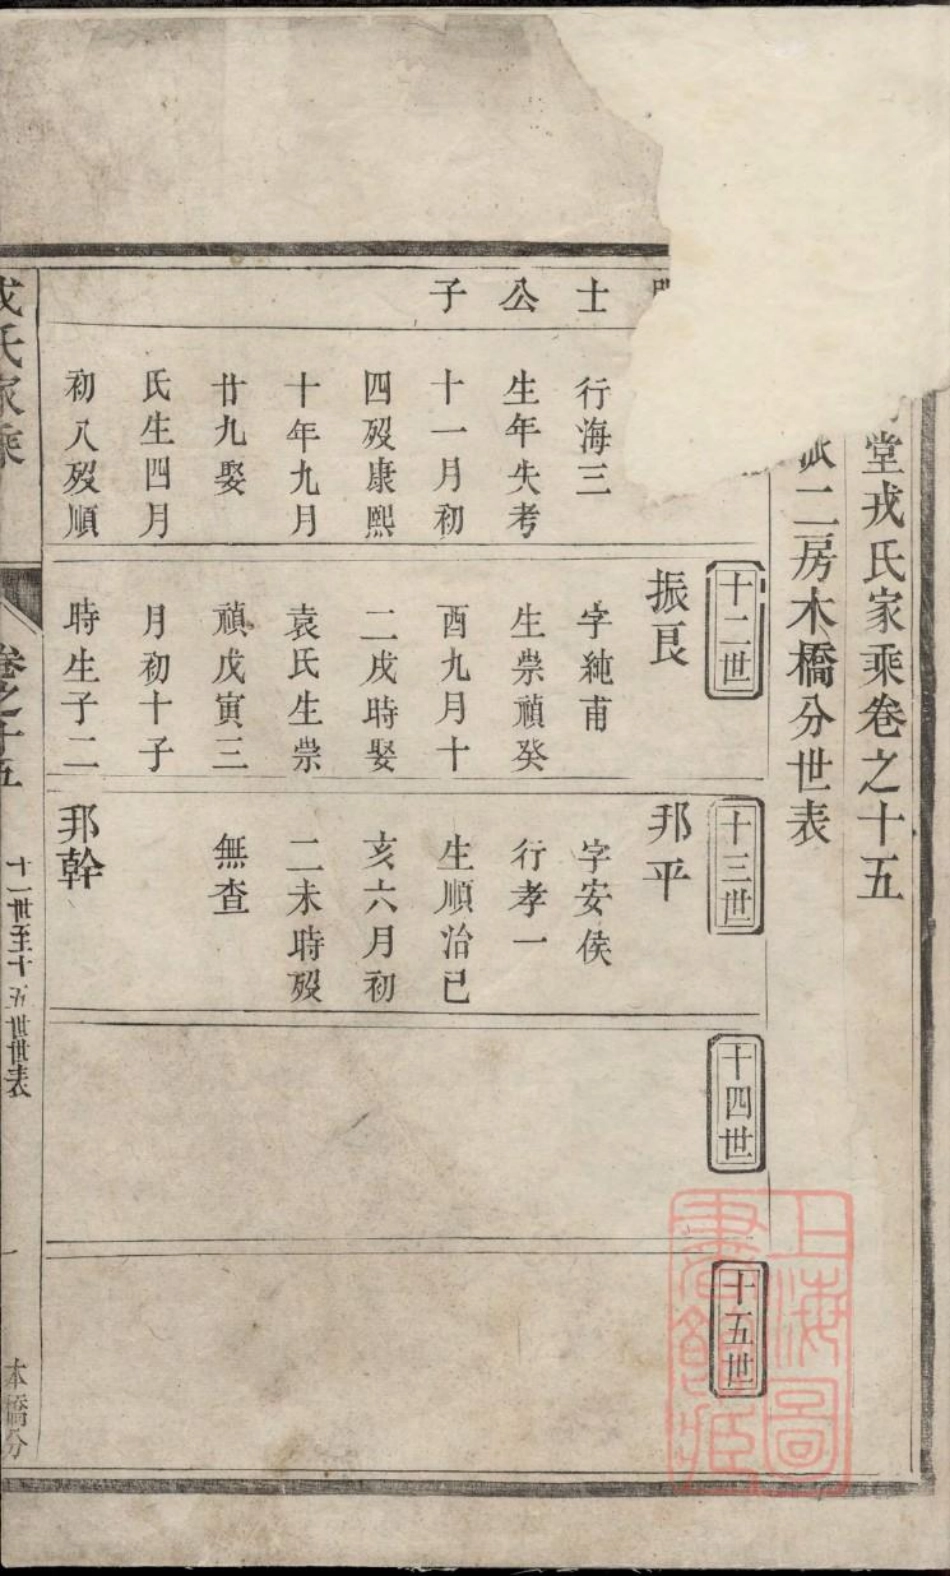 堂戎氏家乘卷之十五
派二房木橋分世表
士
公
子
行海三
生年失考
十一月初
四歿康熙
十年九月
廿九娶
氏生四月
初八歿順
十二世
振良
字純甫
生崇禎癸
酉九月十
二戌時娶
袁氏生崇
禎戊寅三
月初十子
時生子二
十三世
邦平
字安侯
行孝一
生順治己
亥六月初
二未時歿
無查
邦幹
十四世
十五世
戎氏家乘
卷之十五
十一世至十五世世表
一
木橋分
上海圖書館藏